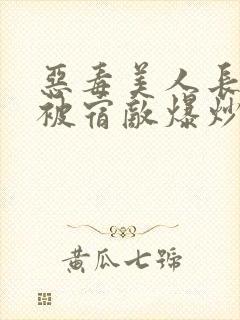 惡毒美人長
被宿敵爆炒
黃瓜七號